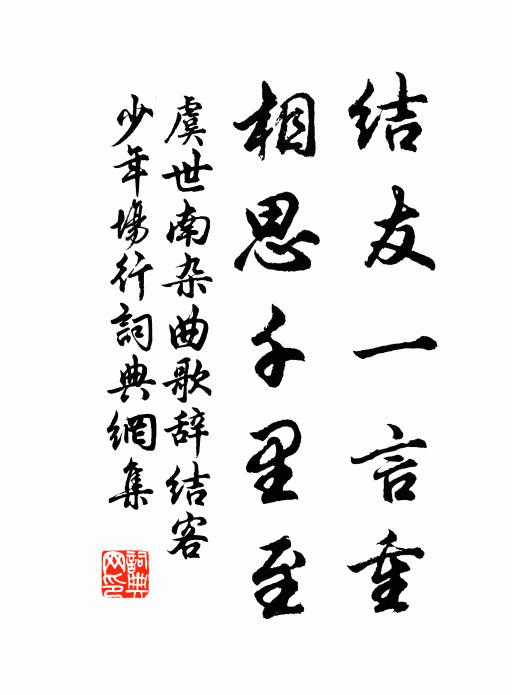 结友一言重
相思千里至
虞世南杂曲歌辞结客
少年場行詞典網集
詞典网印